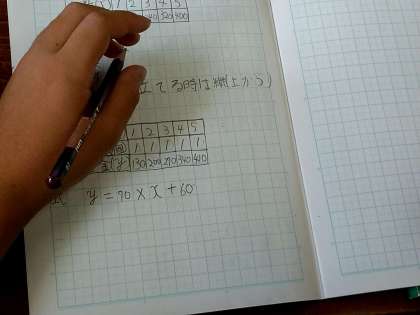 1 2 3 4 5
320 400
立てる時は縦(上から)
1 2 3 4 5
1 1 1 1 1
y 130 200 270 340 410
y = 70 × x + 60